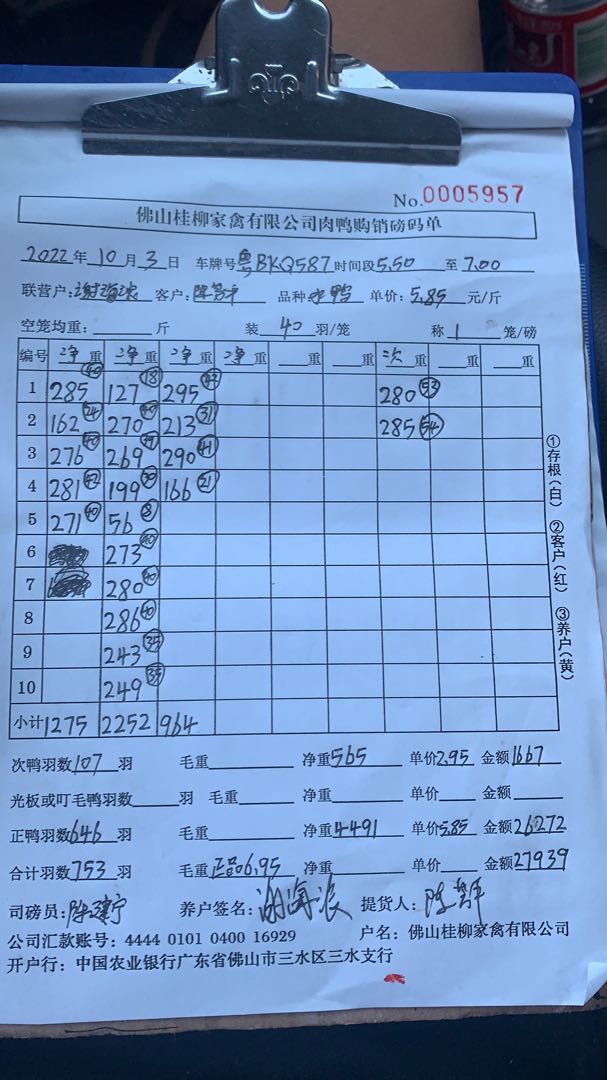 No.0005957
佛山桂柳家禽有限公司肉鸭购销磅码单
2022年10月3日 车牌号粤BKQ587时间段5.50至7.00
联营户: 客户: 品种 单价:5.85元/斤
空笼均重: 斤 装40羽/笼 称1笼/磅
编号 净重 净重 净重 净重 重 重 次重 重 重
1 285 40 127 18 295 280 53
2 162 24 270 40 213 31 285 54
3 276 40 269 290 41
4 281 42 199 166 21
5 271 40 56 8
6 273 40
7 280 40
8 286 40
9 243 35
10 249
小计 1275 2252 964
①存根(白) ②客户(红) ③养户(黄)
次鸭羽数107羽 毛重 净重565 单价2.95 金额1667
光板或叮毛鸭羽数 羽 毛重 净重 单价 金额
正鸭羽数646羽 毛重 净重4491 单价5.85 金额26272
合计羽数753羽 毛重正品6.95 净重 单价 金额27939
司磅员: 养户签名: 提货人:
公司汇款账号: 4444 0101 0400 16929 户名: 佛山桂柳家禽有限公司
开户行: 中国农业银行广东省佛山市三水区三水支行